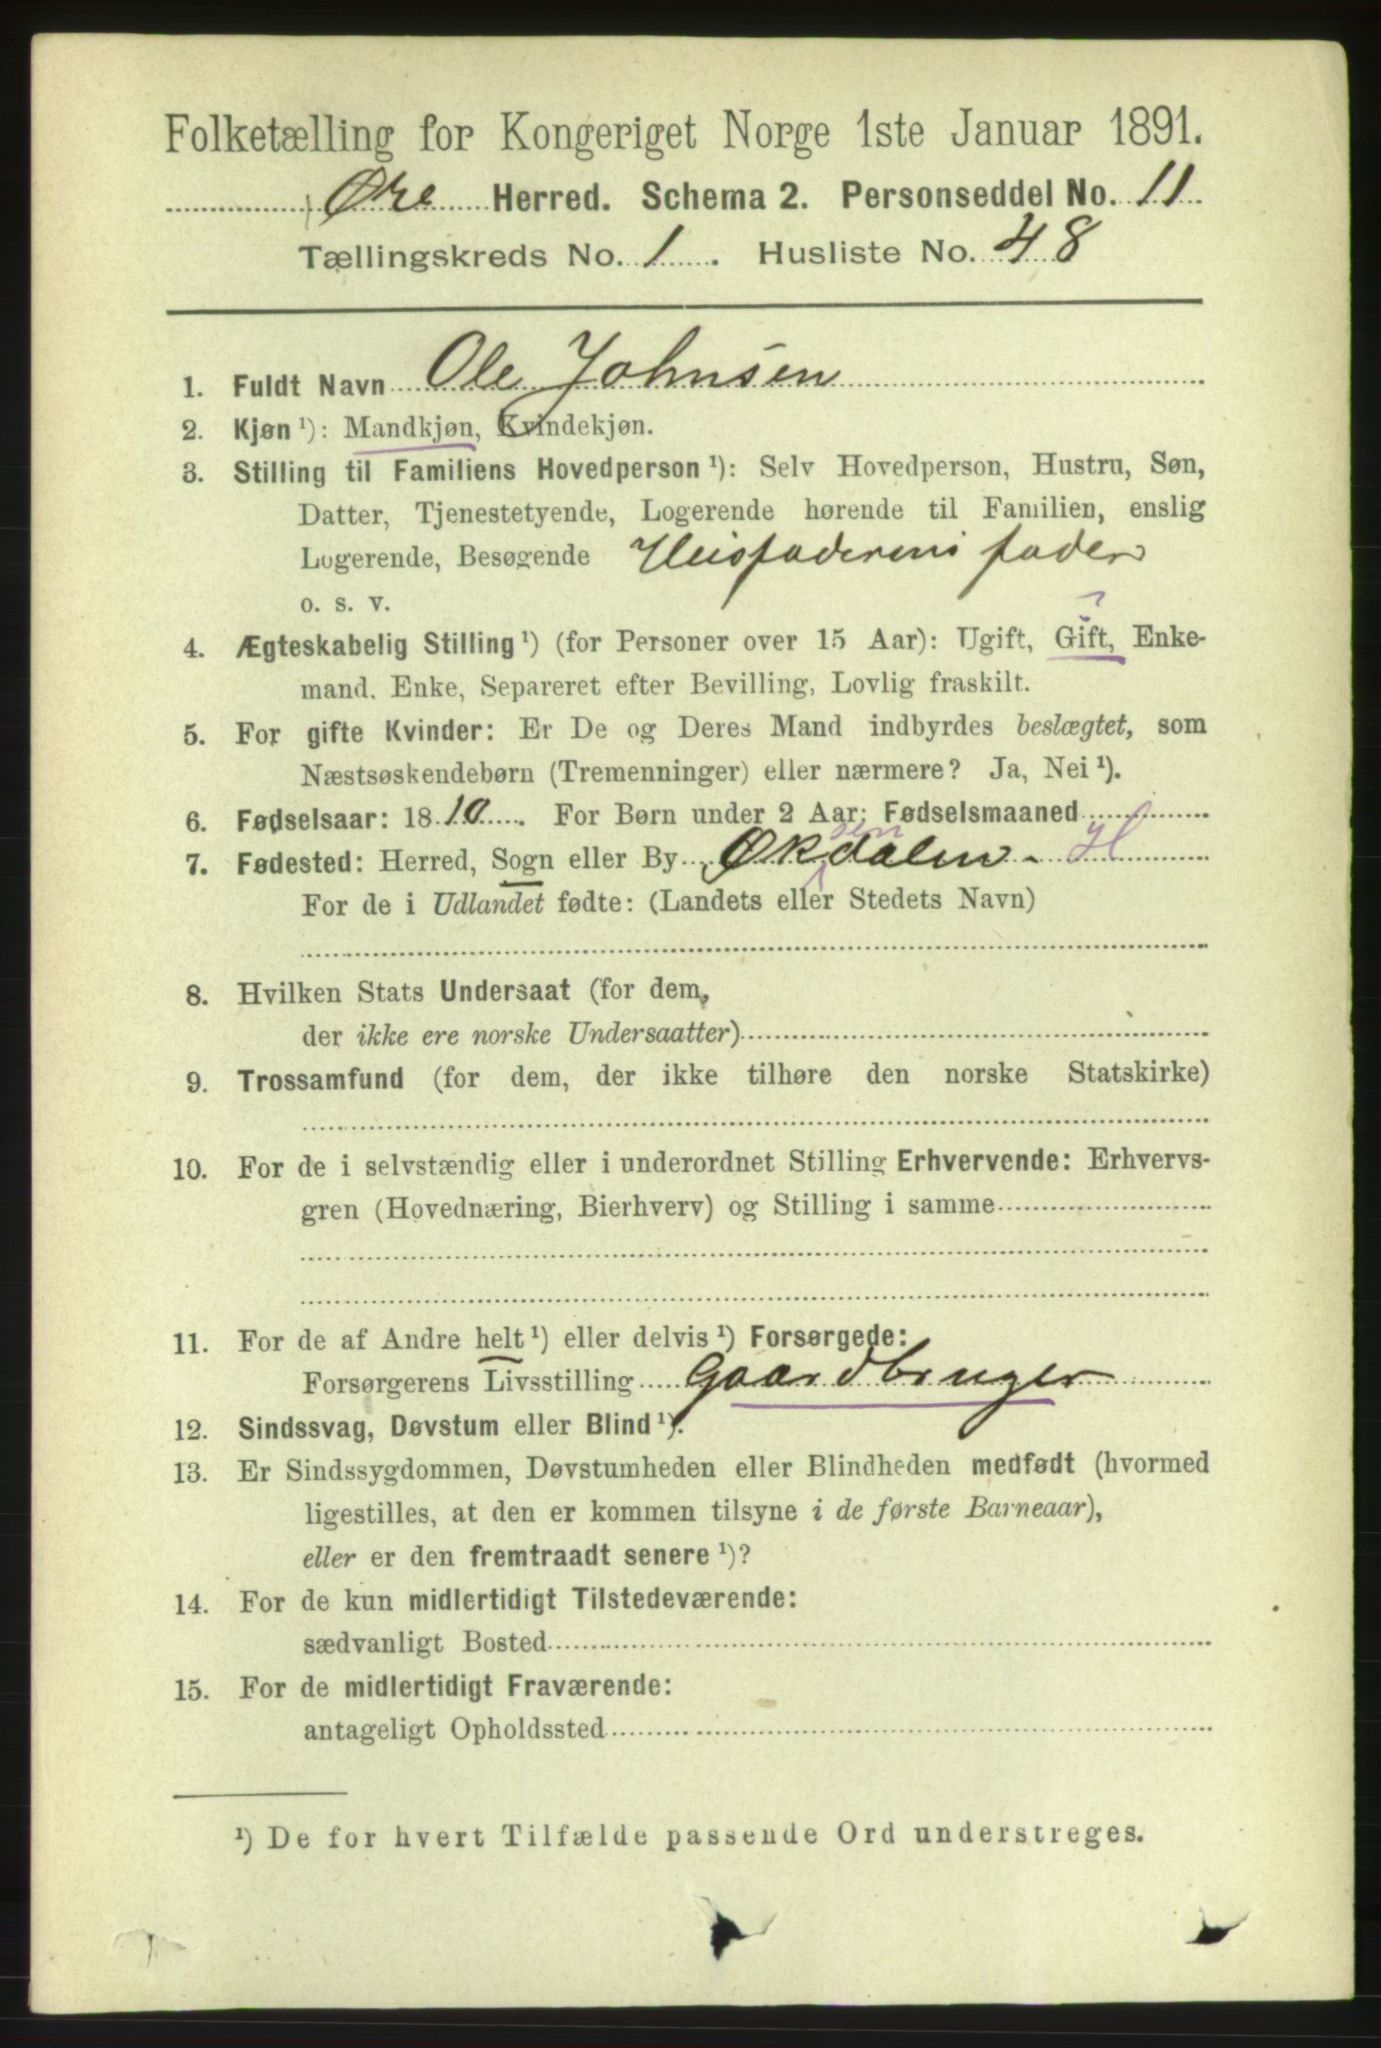 Folketælling for Kongeriget Norge 1ste Januar 1891.
Øre Herred. Schema 2. Personseddel No. 11
Tællingskreds No. 1. Husliste No. 48
1. Fuldt Navn Ole Johnsen
2. Kjøn ¹): Mandkjøn, Kvindekjøn.
3. Stilling til Familiens Hovedperson ¹): Selv Hovedperson, Hustru, Søn,
Datter, Tjenestetyende, Logerende hørende til Familien, enslig
Logerende, Besøgende Husfaderens fader
o. s. v.
4. Ægteskabelig Stilling ¹) (for Personer over 15 Aar): Ugift, Gift, Enke-
mand, Enke, Separeret efter Bevilling, Lovlig fraskilt.
5. For gifte Kvinder: Er De og Deres Mand indbyrdes beslægtet, som
Næstsøskendebørn (Tremenninger) eller nærmere? Ja, Nei ¹).
6. Fødselsaar: 1810. For Børn under 2 Aar: Fødselsmaaned
7. Fødested: Herred, Sogn eller By Øksendalen - H
For de i Udlandet fødte: (Landets eller Stedets Navn)
8. Hvilken Stats Undersaat (for dem,
der ikke ere norske Undersaatter)
9. Trossamfund (for dem, der ikke tilhøre den norske Statskirke)
10. For de i selvstændig eller i underordnet Stilling Erhvervende: Erhvervs-
gren (Hovednæring, Bierhverv) og Stilling i samme
11. For de af Andre helt ¹) eller delvis ¹) Forsørgede:
Forsørgerens Livsstilling Gaardbruger
12. Sindssvag, Døvstum eller Blind ¹).
13. Er Sindssygdommen, Døvstumheden eller Blindheden medfødt (hvormed
ligestilles, at den er kommen tilsyne i de første Barneaar),
eller er den fremtraadt senere ¹)?
14. For de kun midlertidigt Tilstedeværende:
sædvanligt Bosted
15. For de midlertidigt Fraværende:
antageligt Opholdssted
¹) De for hvert Tilfælde passende Ord understreges.